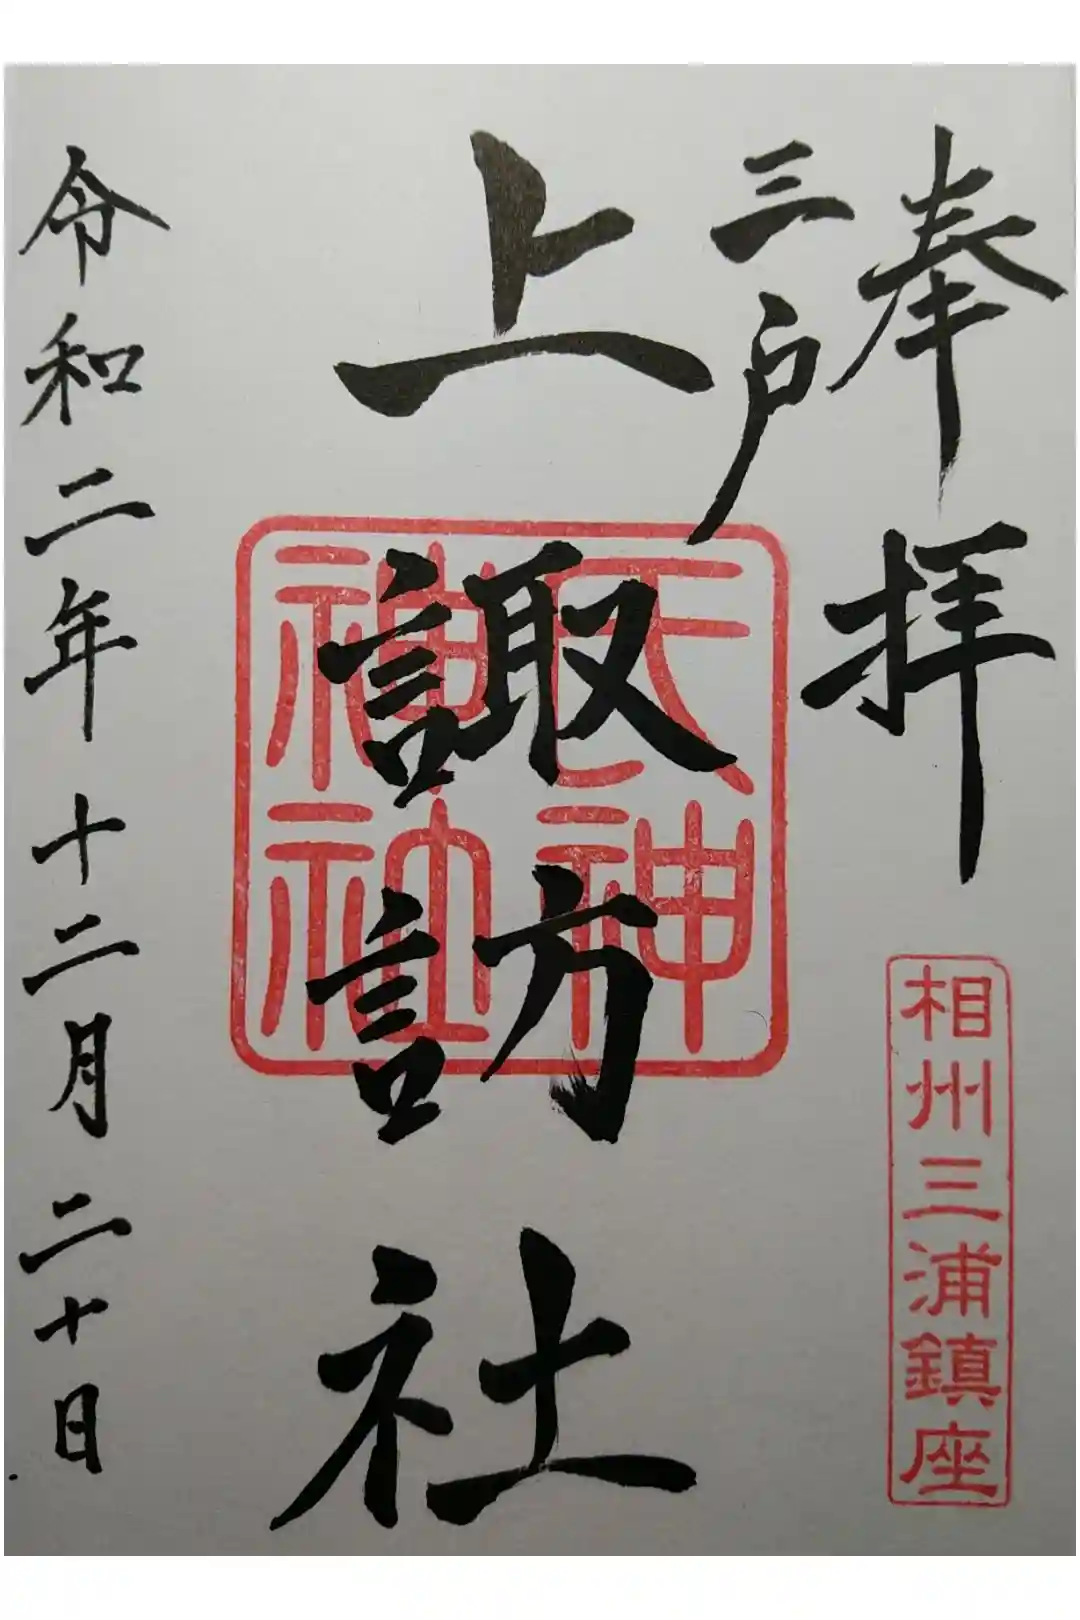 奉拝
相州三浦鎮座
三戸
上諏訪社
神社
令和二年十二月二十日